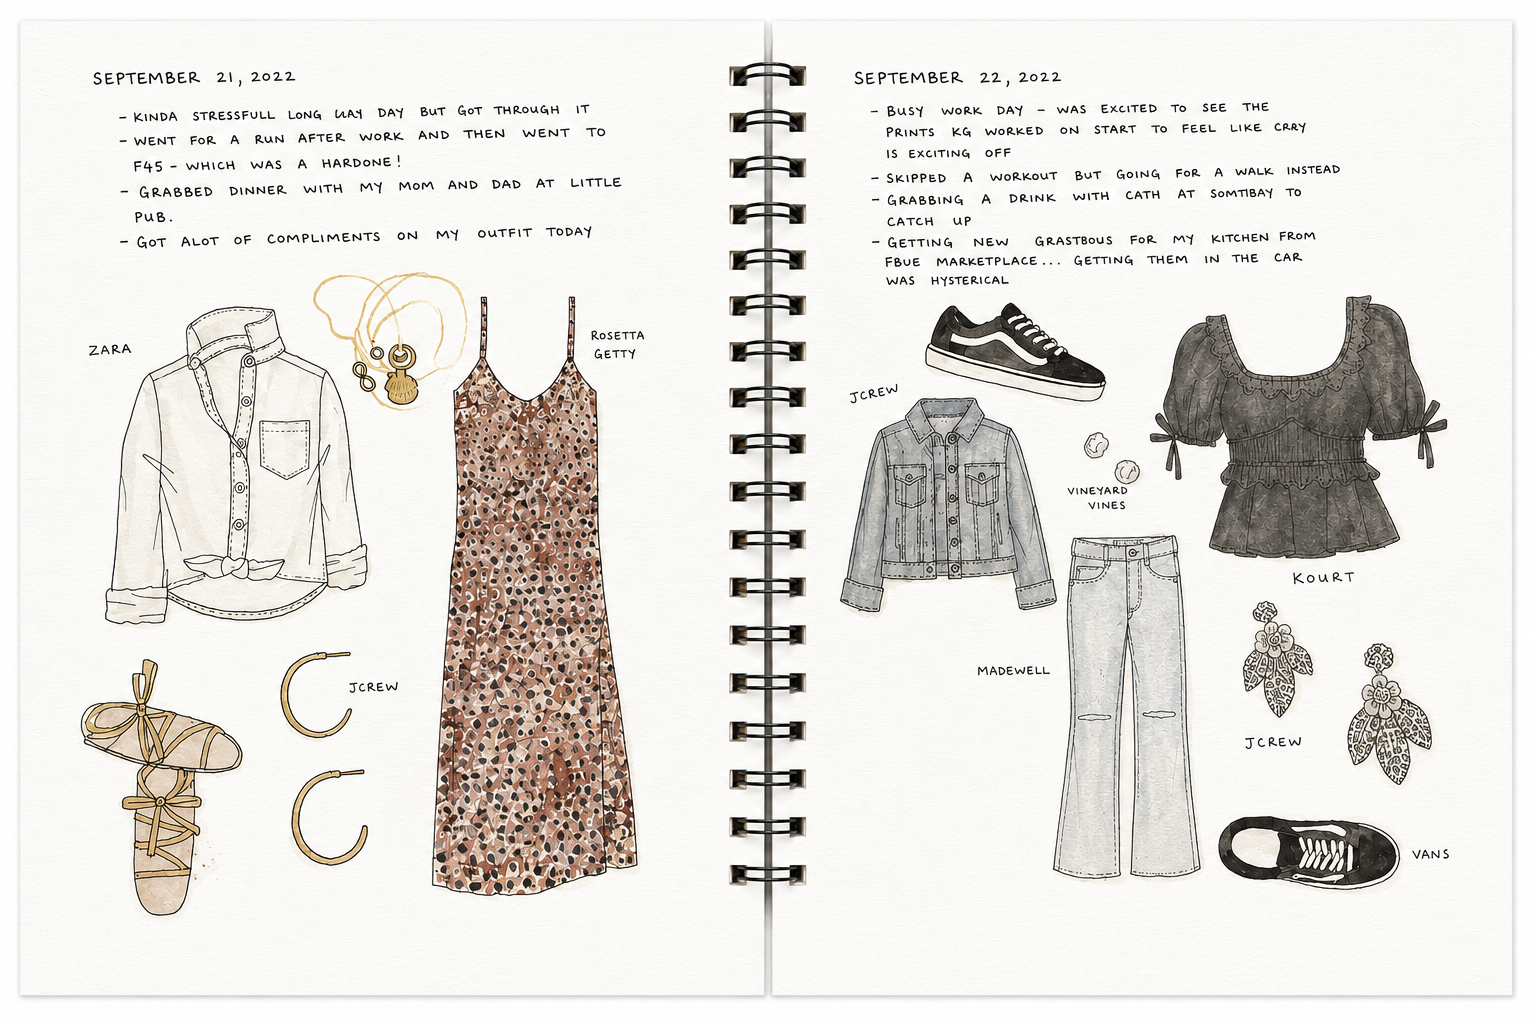 SEPTEMBER 21, 2022
- KINDA STRESSFULL LONG DAY BUT GOT THROUGH IT
- WENT FOR A RUN AFTER WORK AND THEN WENT TO
F45 - WHICH WAS A HARDONE!
- GRABBED DINNER WITH MY MOM AND DAD AT LITTLE
PUB.
- GOT ALOT OF COMPLIMENTS ON MY OUTFIT TODAY
ZARA
ROSETTA
GETTY
JCREW
SEPTEMBER 22, 2022
- BUSY WORK DAY - WAS EXCITED TO SEE THE
PRINTS KG WORKED ON START TO FEEL LIKE CRRY
IS EXCITING OFF
- SKIPPED A WORKOUT BUT GOING FOR A WALK INSTEAD
- GRABBING A DRINK WITH CATH AT SOMTIBAY TO
CATCH UP
- GETTING NEW GRASTBOUS FOR MY KITCHEN FROM
FBUE MARKETPLACE... GETTING THEM IN THE CAR
WAS HYSTERICAL
JCREW
VINEYARD
VINES
KOURT
MADEWELL
JCREW
VANS